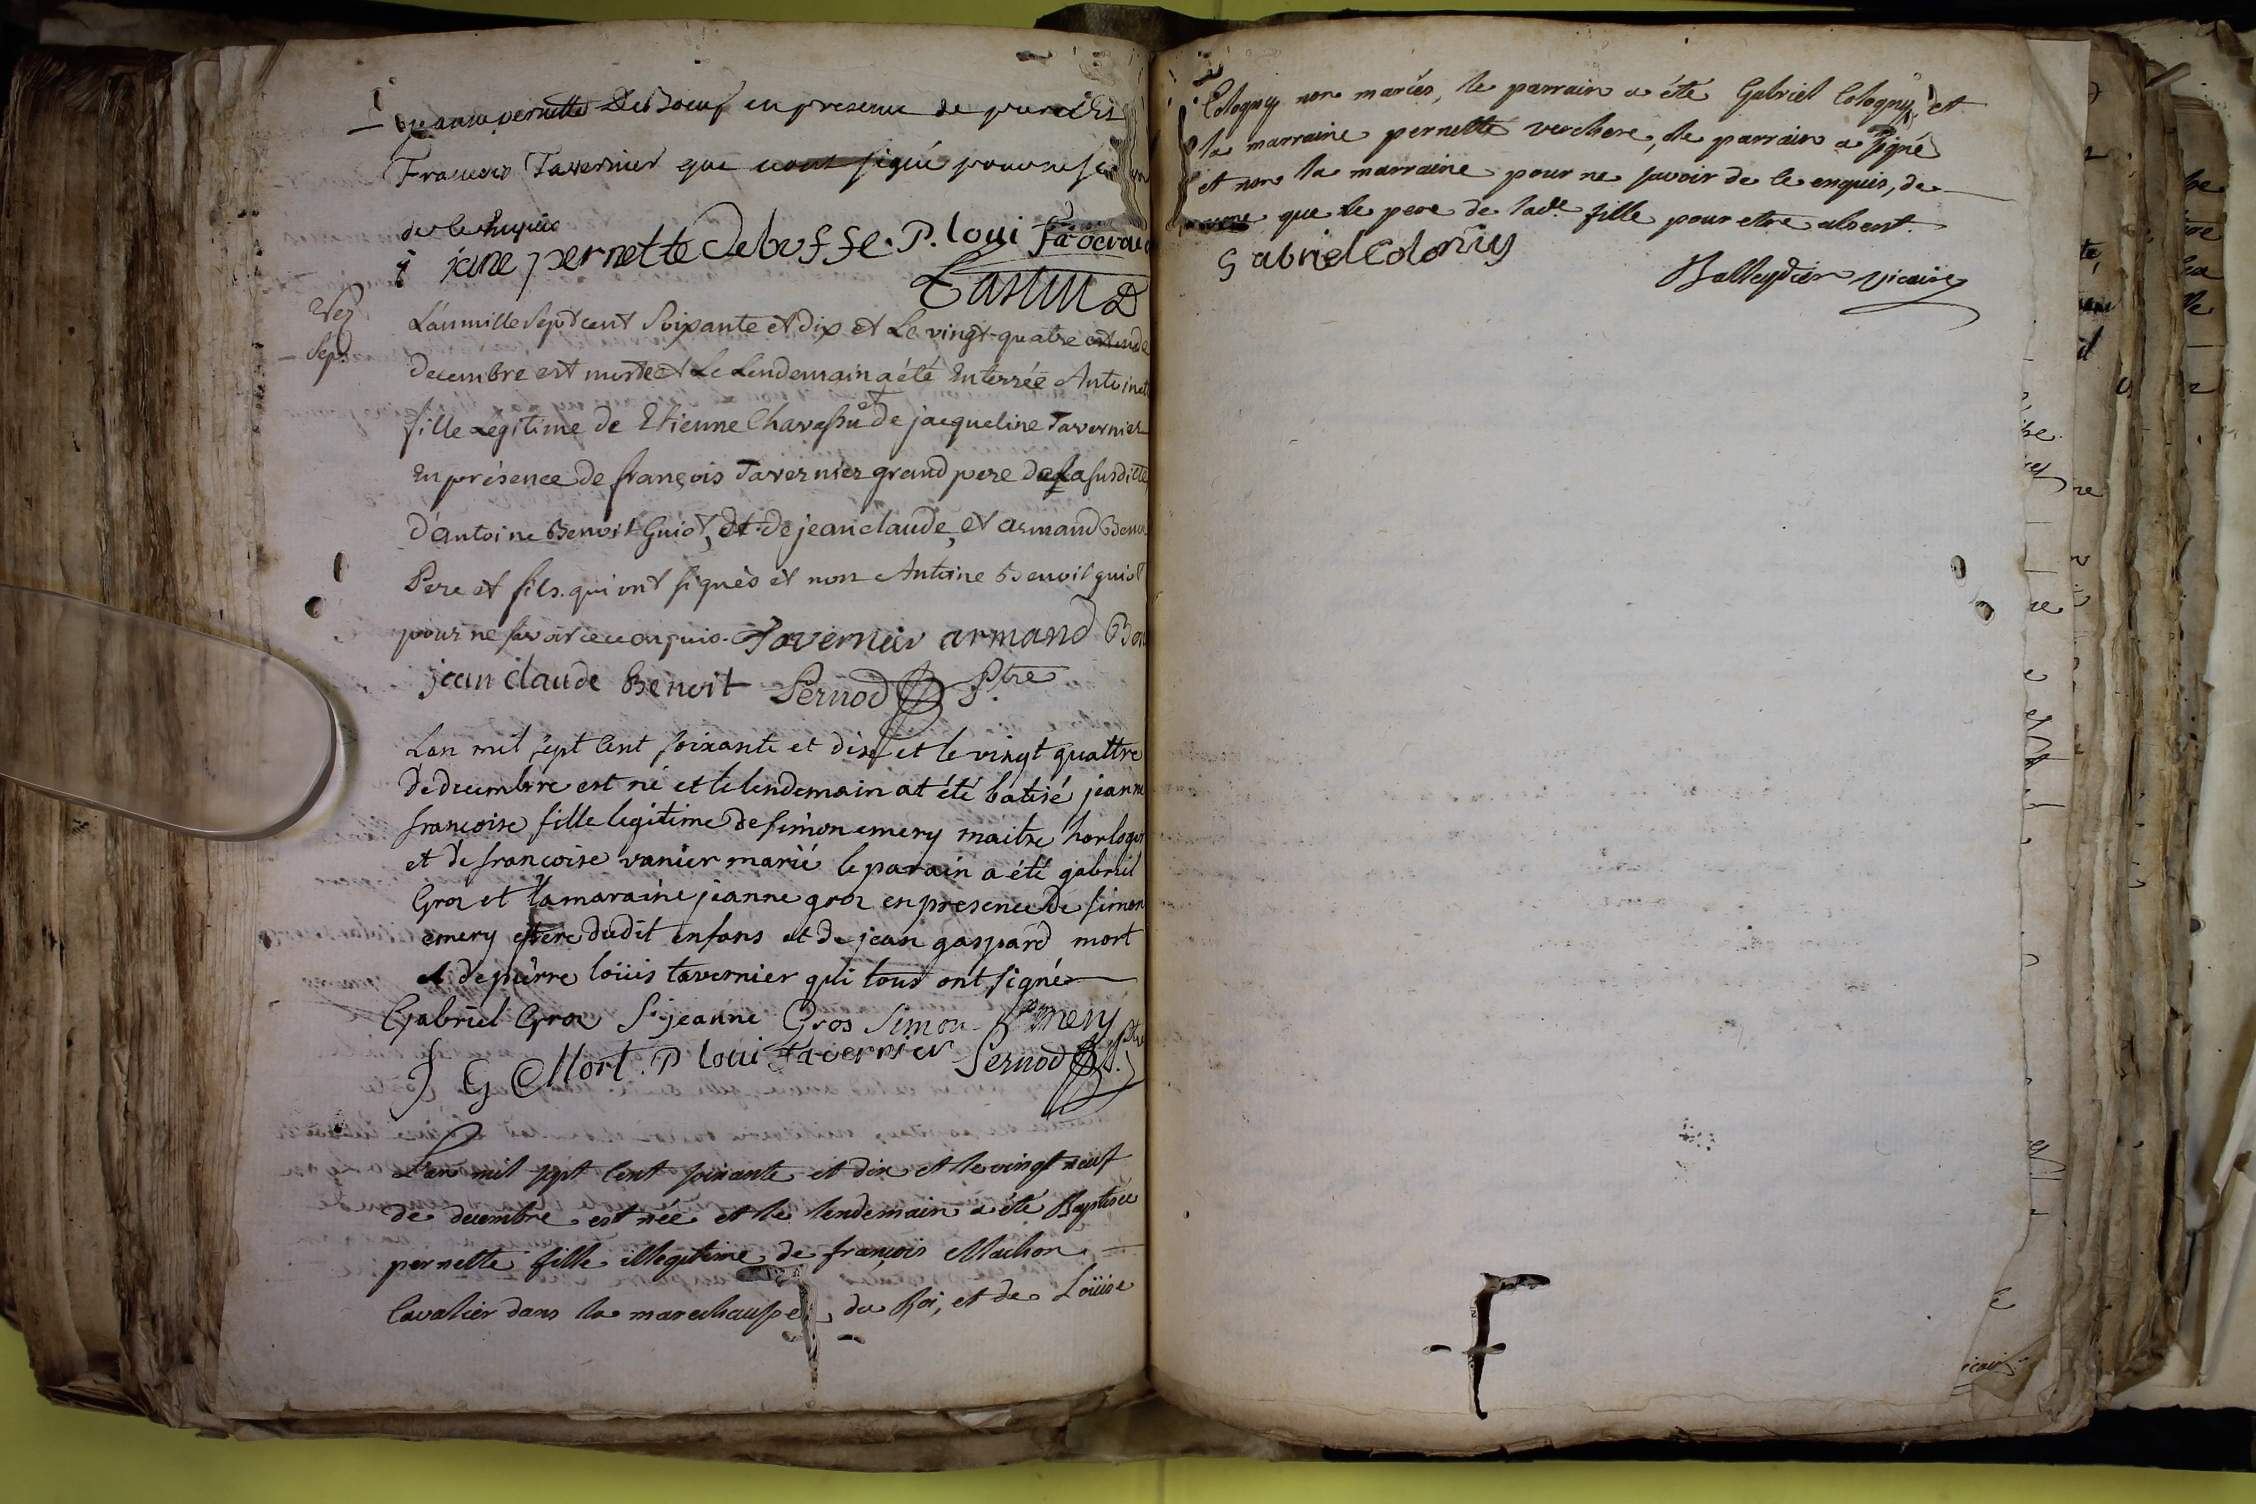 pernette DeBoeuf en presence de
François Tavernier que nont signé pour ne
de ce enquis
jane pernette debosse. P. loui
L'an mille Sept cent Soixante et dix et Le vingt-quatre
Sep.
decembre est morte et Le Lendemain a été Enterrée Antoinet
fille Légitime de Etienne Chavassu & de jacqueline Tavernier
En présence de françois Tavernier grand pere de la susditte
d'Antoine Benoit-Guiot, et de jean claude, et armand Benoi
Pere et fils. qui ont signés et non Antoine Benoit guiot
pour ne savoir ce enquis. Tavernier armand Ben
jean claude Benoit Pernod Ptre
Lan mil sept Cent soixante et dix et le vingt quattre
De decembre est né et le lendemain at été batisé jeanne
francoise fille legitime de simon emery maitre horloger
et de francoise vanier marié le parain a été gabriel
Gros et la maraine jeanne gros en presence de simon
emery pere dudit enfans et de jean gaspard mort
et de pierre loüis tavernier qui tous ont signé
Gabriel Gros jeanne Gros Simon Emery
J G Mort. P loui tavernier Pernod Ptre
L'an mil sept Cent soixante et dix et le vingt neuf
de decembre est née et le lendemain a été Baptisée
pernette fille illegitime de françois Machon
Cavalier dans la marechaussée du Roi, et de Loüise
Cologny non mariés, le parrain a été Gabriel Cologny, et
la marraine pernette verchere, le parrain a signé
et non la marraine pour ne savoir de ce enquis, de
que le pere de lade. fille pour etre absent.
Gabriel Colonüy
Balleydier vicaire